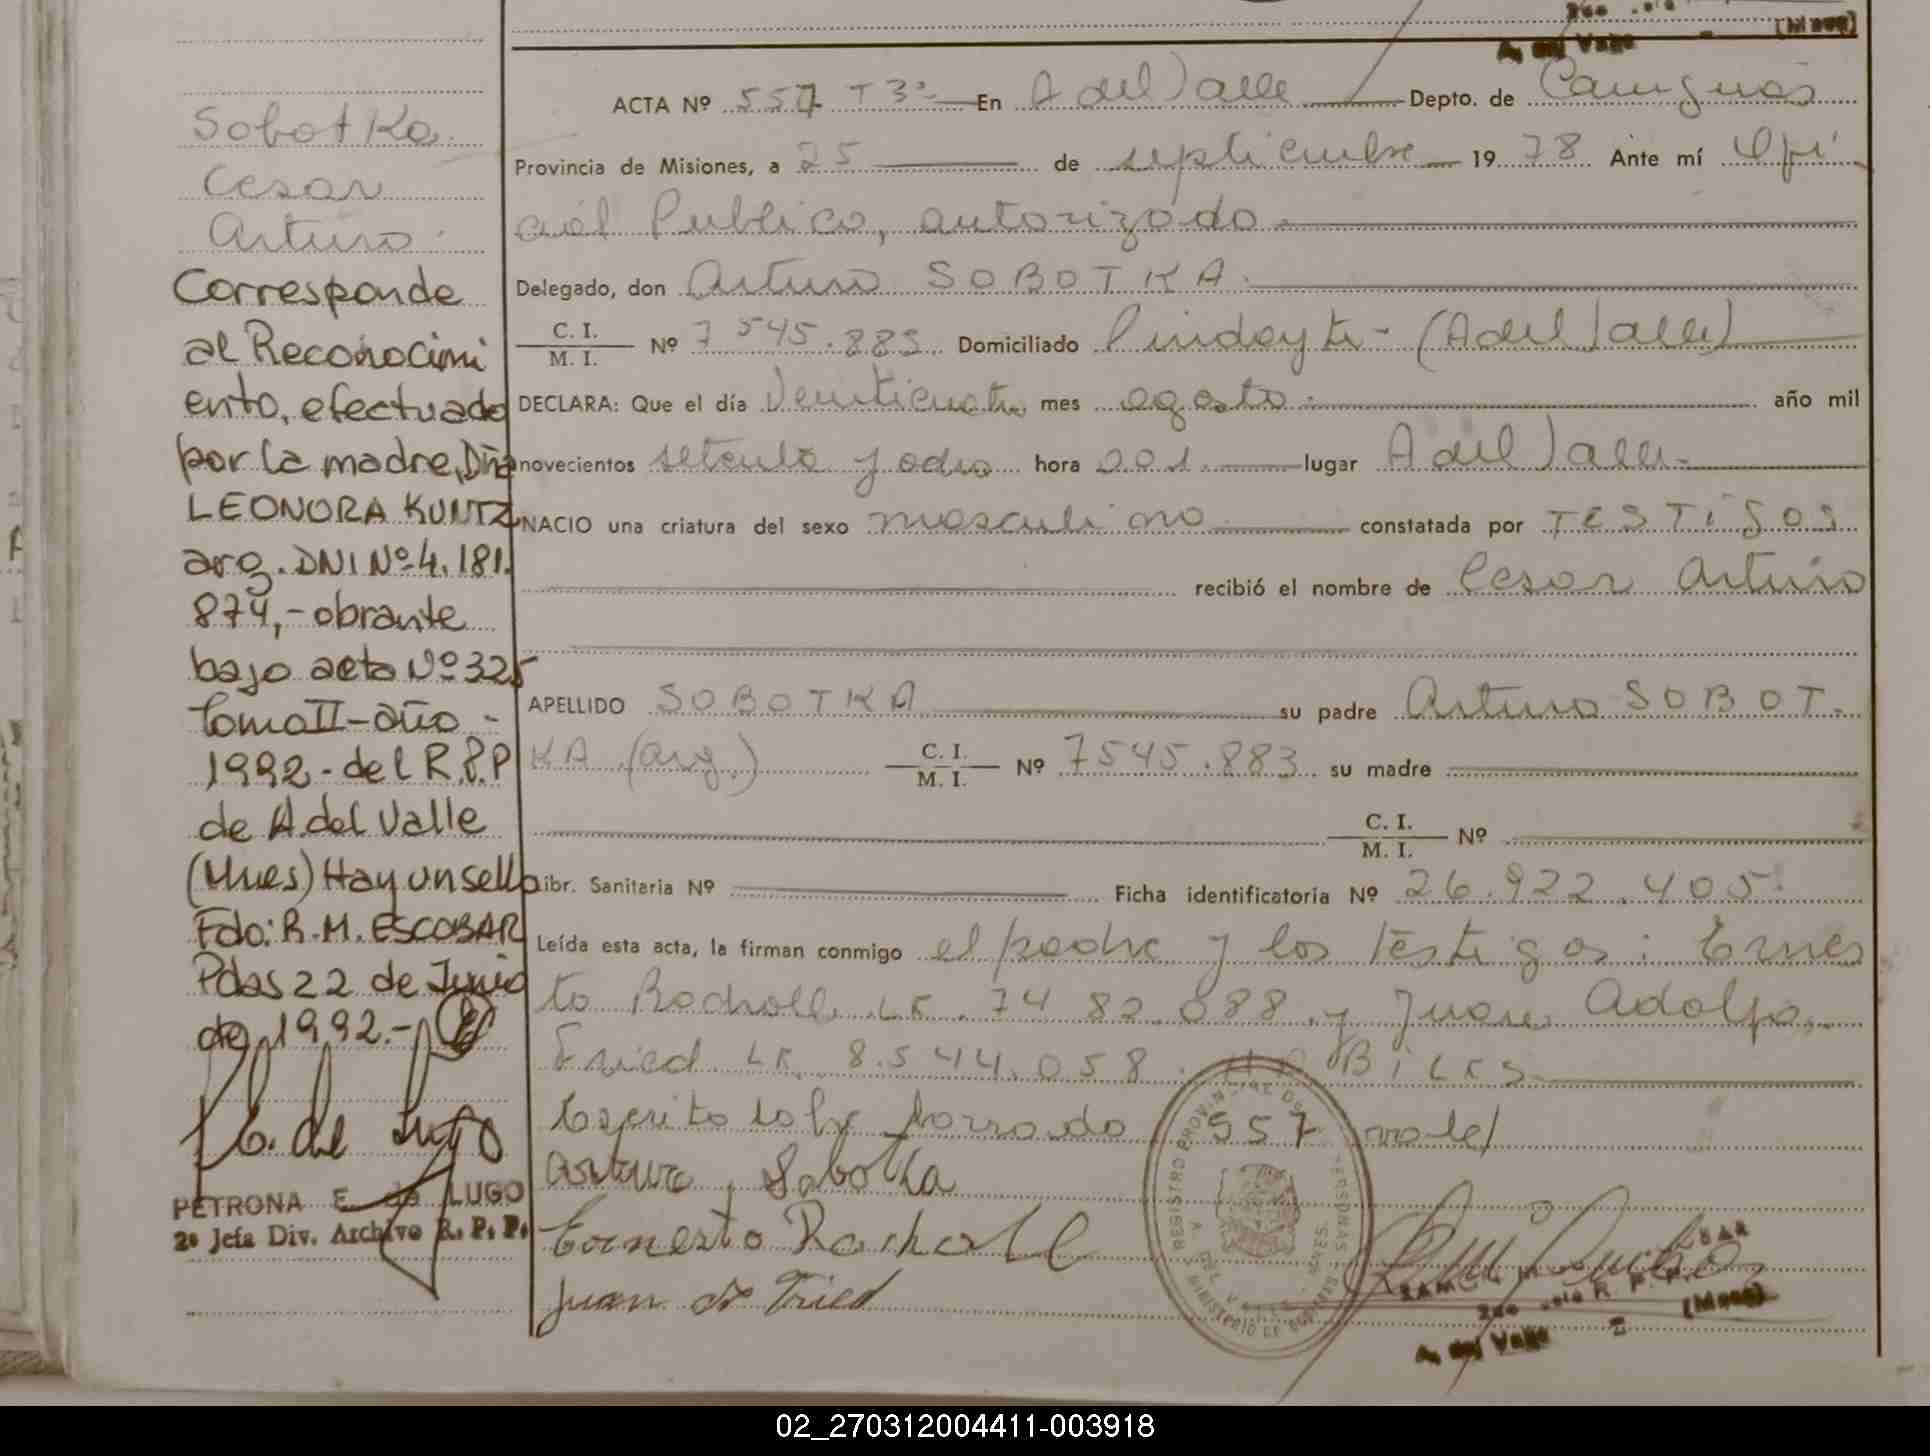 Sobotka
Cesar
Arturo
Corresponde
al Reconocimi
ento, efectuado
por la madre, Dña
LEONORA KUNTZ
arg. DNI Nº 4.181.
874,- obrante
bajo acta Nº 325
tomo II - año -
1992 - del R.P.P
de A. del Valle
(Mnes) Hay un sello
Fdo: R.M. ESCOBAR
Pdas 22 de Junio
de 1992.-
E. de Lugo
PETRONA E. de LUGO
2º Jefa Div. Archivo R. P. P.
A. del Valle (Mnes)
ACTA Nº 557 T3º En A del Valle Depto. de Cainguás
Provincia de Misiones, a 25 de septiembre 1978 Ante mí Ofi
cial Publico, autorizado
Delegado, don Arturo SOBOTKA
C. I.
M. I. Nº 7545.883 Domiciliado Pindayti - (A del Valle)
DECLARA: Que el día Veinticuatro mes agosto año mil
novecientos setenta y ocho hora 001 lugar A del Valle
NACIO una criatura del sexo masculino constatada por TESTIGOS
recibió el nombre de Cesar Arturo
APELLIDO SOBOTKA su padre Arturo SOBOT-
KA (arg.) C. I.
M. I. Nº 7545.883 su madre
C. I.
M. I. Nº
Libr. Sanitaria Nº Ficha identificatoria Nº 26.922.405
Leída esta acta, la firman conmigo el padre y los testigos: Ernes
to Rocholl LE. 7482.088 y Juan Adolfo
Fried LE. 8.544.058. HABILES
Escrito sobre borrado 557 vale/
Arturo Sobotka
Ernesto Rocholl
Juan A Fried
REGISTRO PROVINCIAL DE LAS PERSONAS
A. DEL VALLE - MNES.
MINISTERIO DE GOBIERNO
A. del Valle (Mnes)
02_270312004411-003918